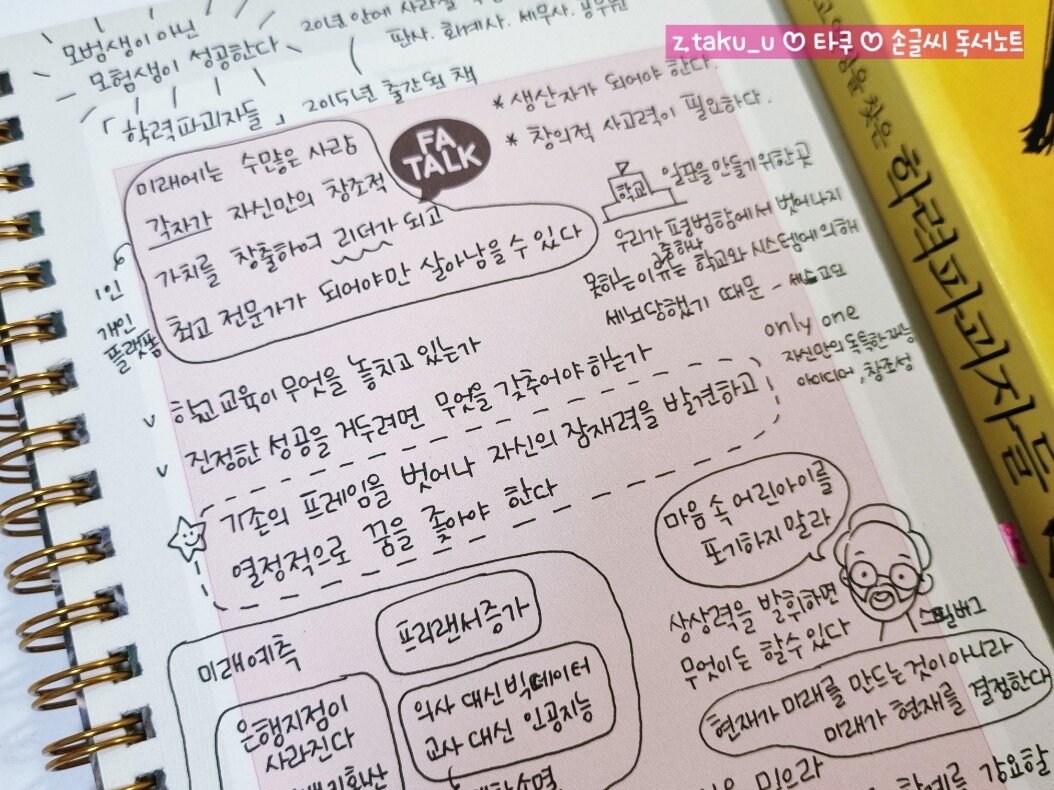 z.taku_u ♡ 타쿠 ♡ 손글씨 독서노트
모범생이 아닌
모험생이 성공한다
20년 안에 사라질
판사. 회계사. 세무사.
「학력파괴자들」 2015년 출간된 책
* 생산자가 되어야 한다.
* 창의적 사고력이 필요하다.
FA
TALK
미래에는 수많은 사람
각자가 자신만의 창조적
가치를 창출하여 리더가 되고
최고 전문가가 되어야만 살아남을 수 있다
1인
개인
플랫폼
학교 일꾼을 만들기 위한 곳
우리가 평범함에서 벗어나지
못하는 이유는 학교와 시스템에 의해
세뇌당했기 때문 - 세스고딘
only one
자신만의 독특한 재능
아이디어, 창조성
v 학교 교육이 무엇을 놓치고 있는가
v 진정한 성공을 거두려면 무엇을 갖추어야 하는가
기존의 프레임을 벗어나 자신의 잠재력을 발견하고
열정적으로 꿈을 좇아야 한다
마음 속 어린아이를
포기하지 말라
스필버그
상상력을 발휘하면
무엇이든 할 수 있다
현재가 미래를 만드는 것이 아니라
미래가 현재를 결정한다
미래예측
프리랜서 증가
은행지점이
사라진다
의사 대신 빅데이터
교사 대신 인공지능
믿으라
강요할
학력파괴자들